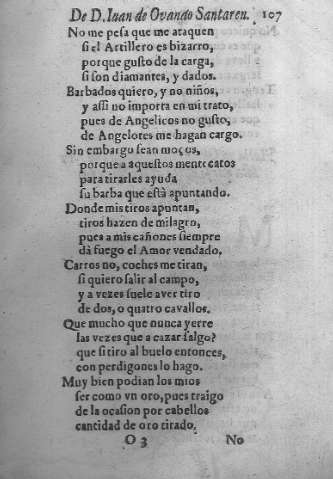 De D. Iuan de Ovando Santaren. 107
No me pesa que me ataquen
si el Artillero es bizarro,
porque gusto de la carga,
si son diamantes, y dados.
Barbados quiero, y no niños,
y assi no importa en mi trato,
pues de Angelicos no gusto,
de Angelotes me hagan cargo.
Sin embargo sean moços,
porque a aquestos mentecatos
para tirarles ayuda
su barba que està apuntando.
Donde mis tiros apuntan,
tiros hazen de milagro,
pues a mis cañones siempre
dà fuego el Amor vendado.
Carros no, coches me tiran,
si quiero salir al campo,
y a vezes suele aver tiro
de dos, o quatro cavallos.
Que mucho que nunca yerre
las vezes que a cazar salgo?
que si tiro al buelo entonces,
con perdigones lo hago.
Muy bien podian los mios
ser como vn oro, pues traigo
de la ocasion por cabellos
cantidad de oro tirado.
O 3 No